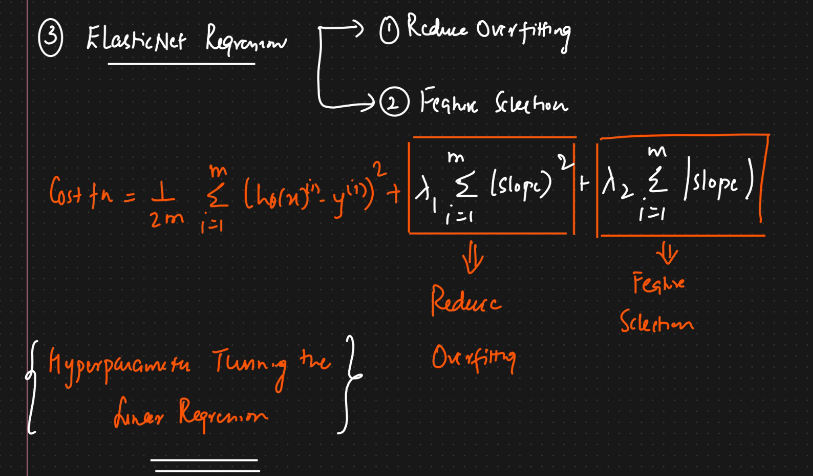 ③ ElasticNet Regression
① Reduce Overfitting
② Feature Selection
Cost fn = 1/2m m Σ i=1 (hθ(x)⁽ⁱ⁾ - y⁽ⁱ⁾)² + λ₁ m Σ i=1 (slope)² + λ₂ m Σ i=1 |slope|
⇓ Reduce Overfitting
⇓ Feature Selection
{ Hyperparameter Tunning the
Linear Regression }